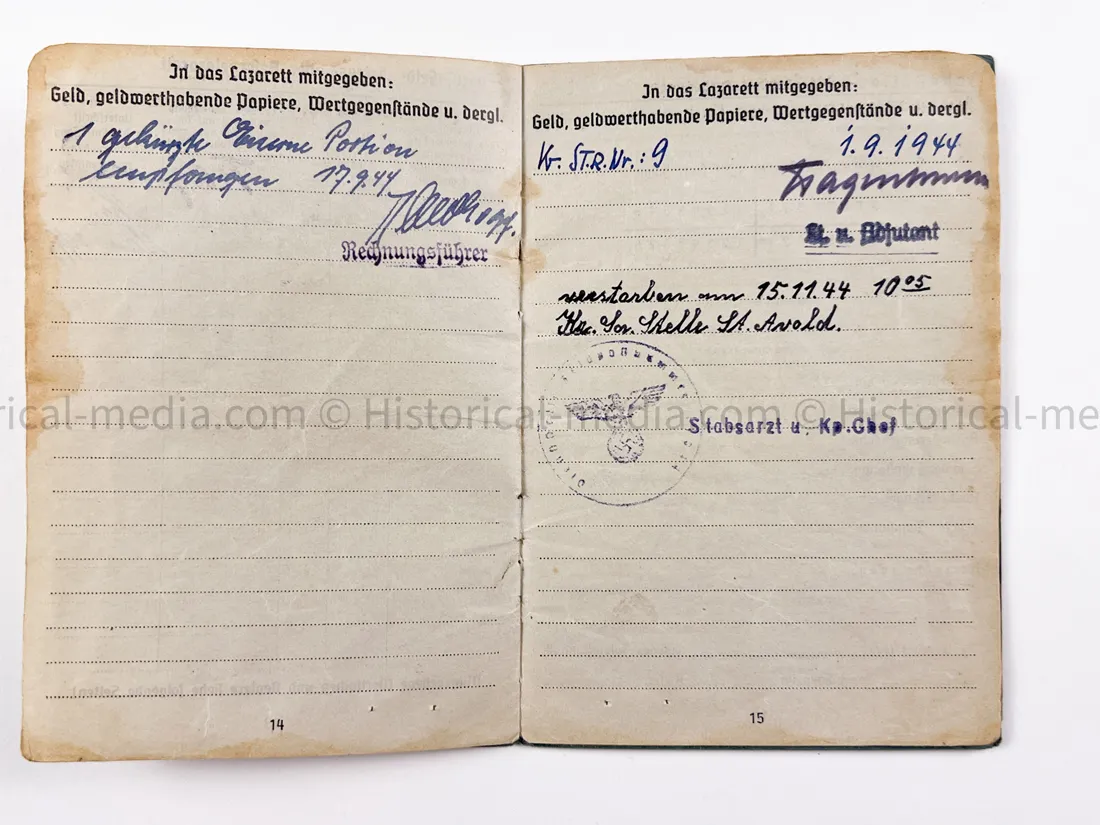 In das Lazarett mitgegeben:
Geld, geldwerthabende Papiere, Wertgegenstände u. dergl.
1 gekürzte Eiserne Portion
empfangen 17.9.44
Rechnungsführer
14
In das Lazarett mitgegeben:
Geld, geldwerthabende Papiere, Wertgegenstände u. dergl.
Kr. STR. Nr.: 9 1.9.1944
Lt. u. Adjutant
verstorben am 15.11.44 10 05
Kr. Stelle St. Avold.
Stabsarzt u. Kp.Chef
15
orical-media.com © Historical-media.com © Historical-me